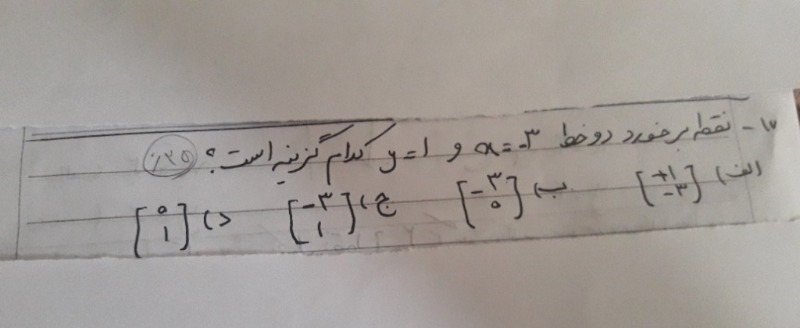 ۱۷- نقطه برخورد دو خط x=-۳ و y=۱ کدام گزینه است؟ ۰/۲۵
الف) [+۱ -۳] ب) [-۳ ۰] ج) [-۳ ۱] د) [۰ ۱]